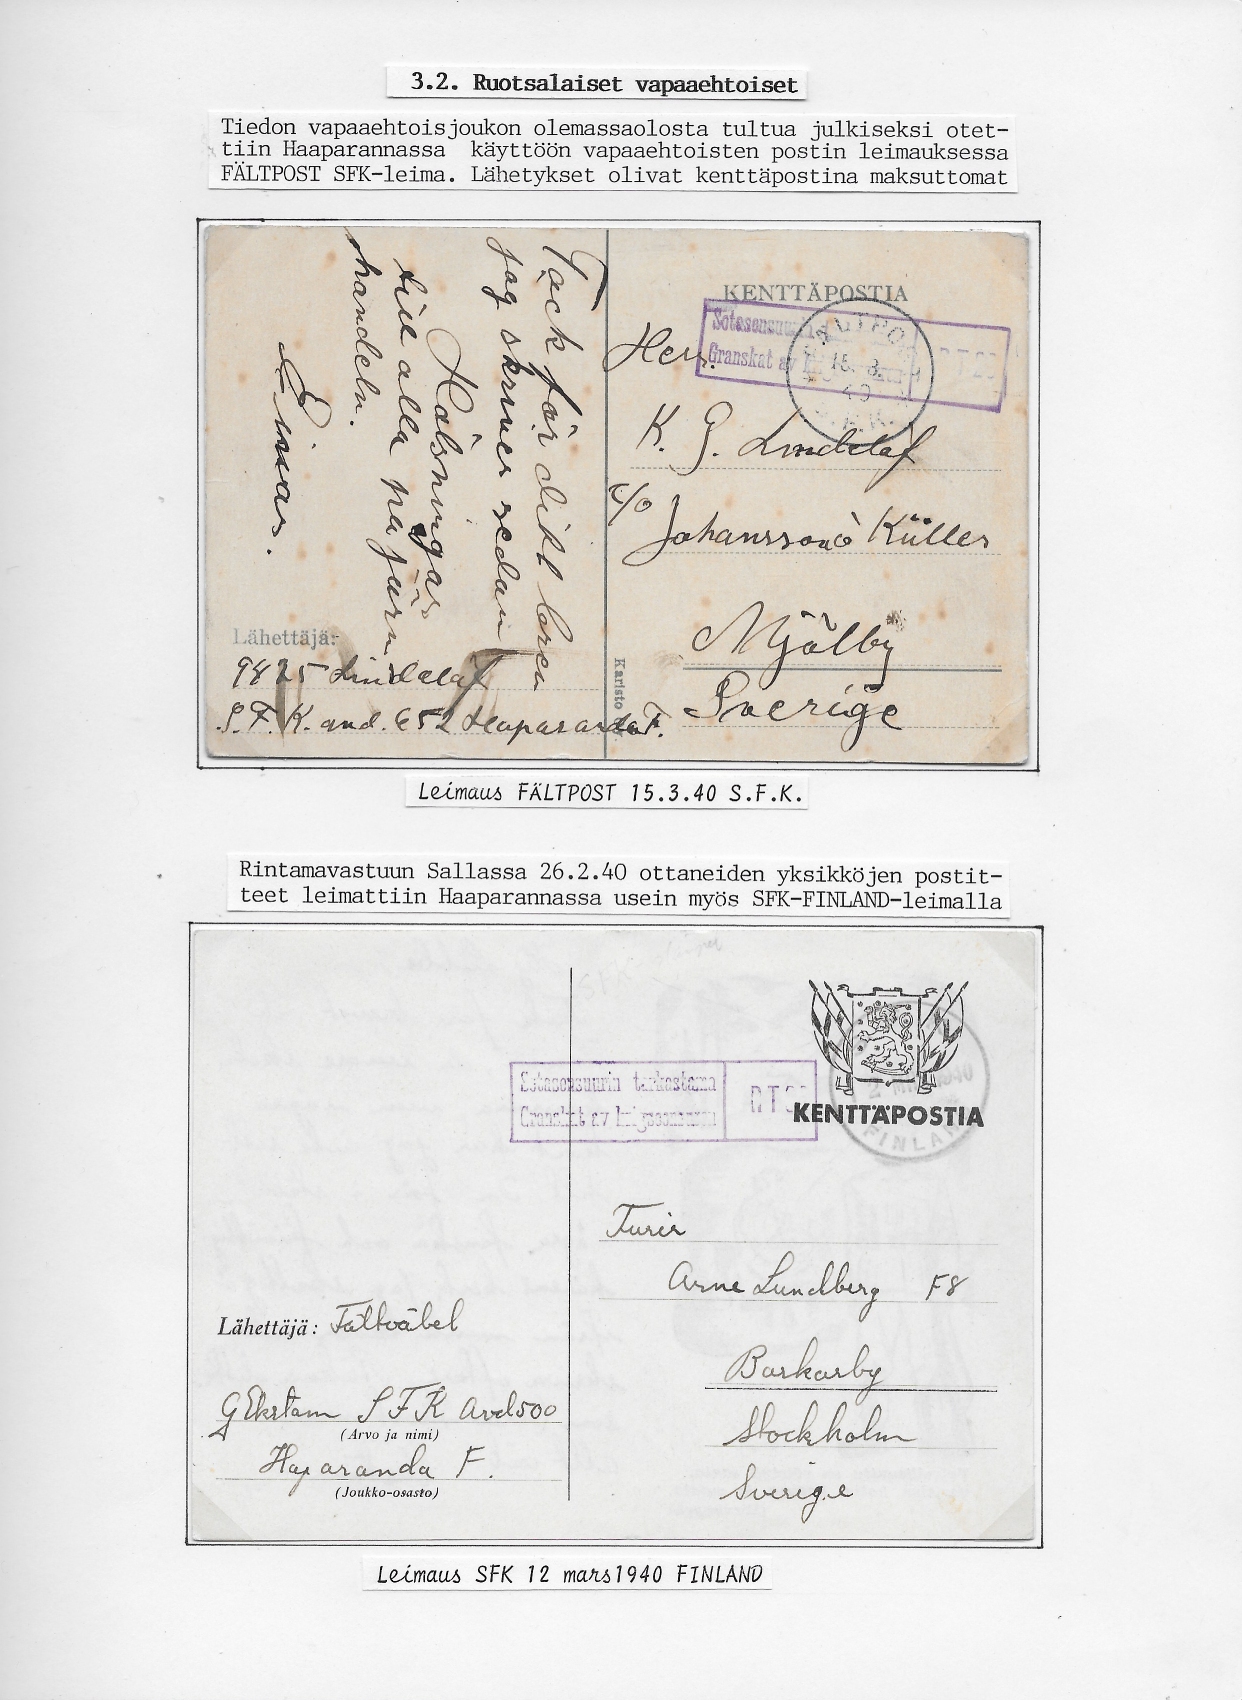 3.2. Ruotsalaiset vapaaehtoiset
Tiedon vapaaehtoisjoukon olemassaolosta tultua julkiseksi otet-
tiin Haaparannassa käyttöön vapaaehtoisten postin leimauksessa
FÄLTPOST SFK-leima. Lähetykset olivat kenttäpostina maksuttomat
Tack för ditt brev
jag skriver sedan
Hälsningar
till alla på järn
handeln.
Einar.
Lähettäjä:
9825 Lindelöf
S.F.K. avd. 652 Haparanda F.
Karisto
KENTTÄPOSTIA
Sotasensuurin
Granskat av
FÄLTPOST
15. 3.
40
S.F.K.
Herr.
K. G. Lindelöf
c/o
Johansson & Küller
Mjölby
Sverige
Leimaus FÄLTPOST 15.3.40 S.F.K.
Rintamavastuun Sallassa 26.2.40 ottaneiden yksikköjen postit-
teet leimattiin Haaparannassa usein myös SFK-FINLAND-leimalla
Sotasensuurin tarkastama
Granskat av krigscensuren
KENTTÄPOSTIA
1940
FINLAND
Furir
Arne Lundberg F8
Barkarby
Stockholm
Sverige
Lähettäjä: Fältväbel
G Ekstam S F K Avd 500
(Arvo ja nimi)
Haparanda F.
(Joukko-osasto)
Leimaus SFK 12 mars 1940 FINLAND